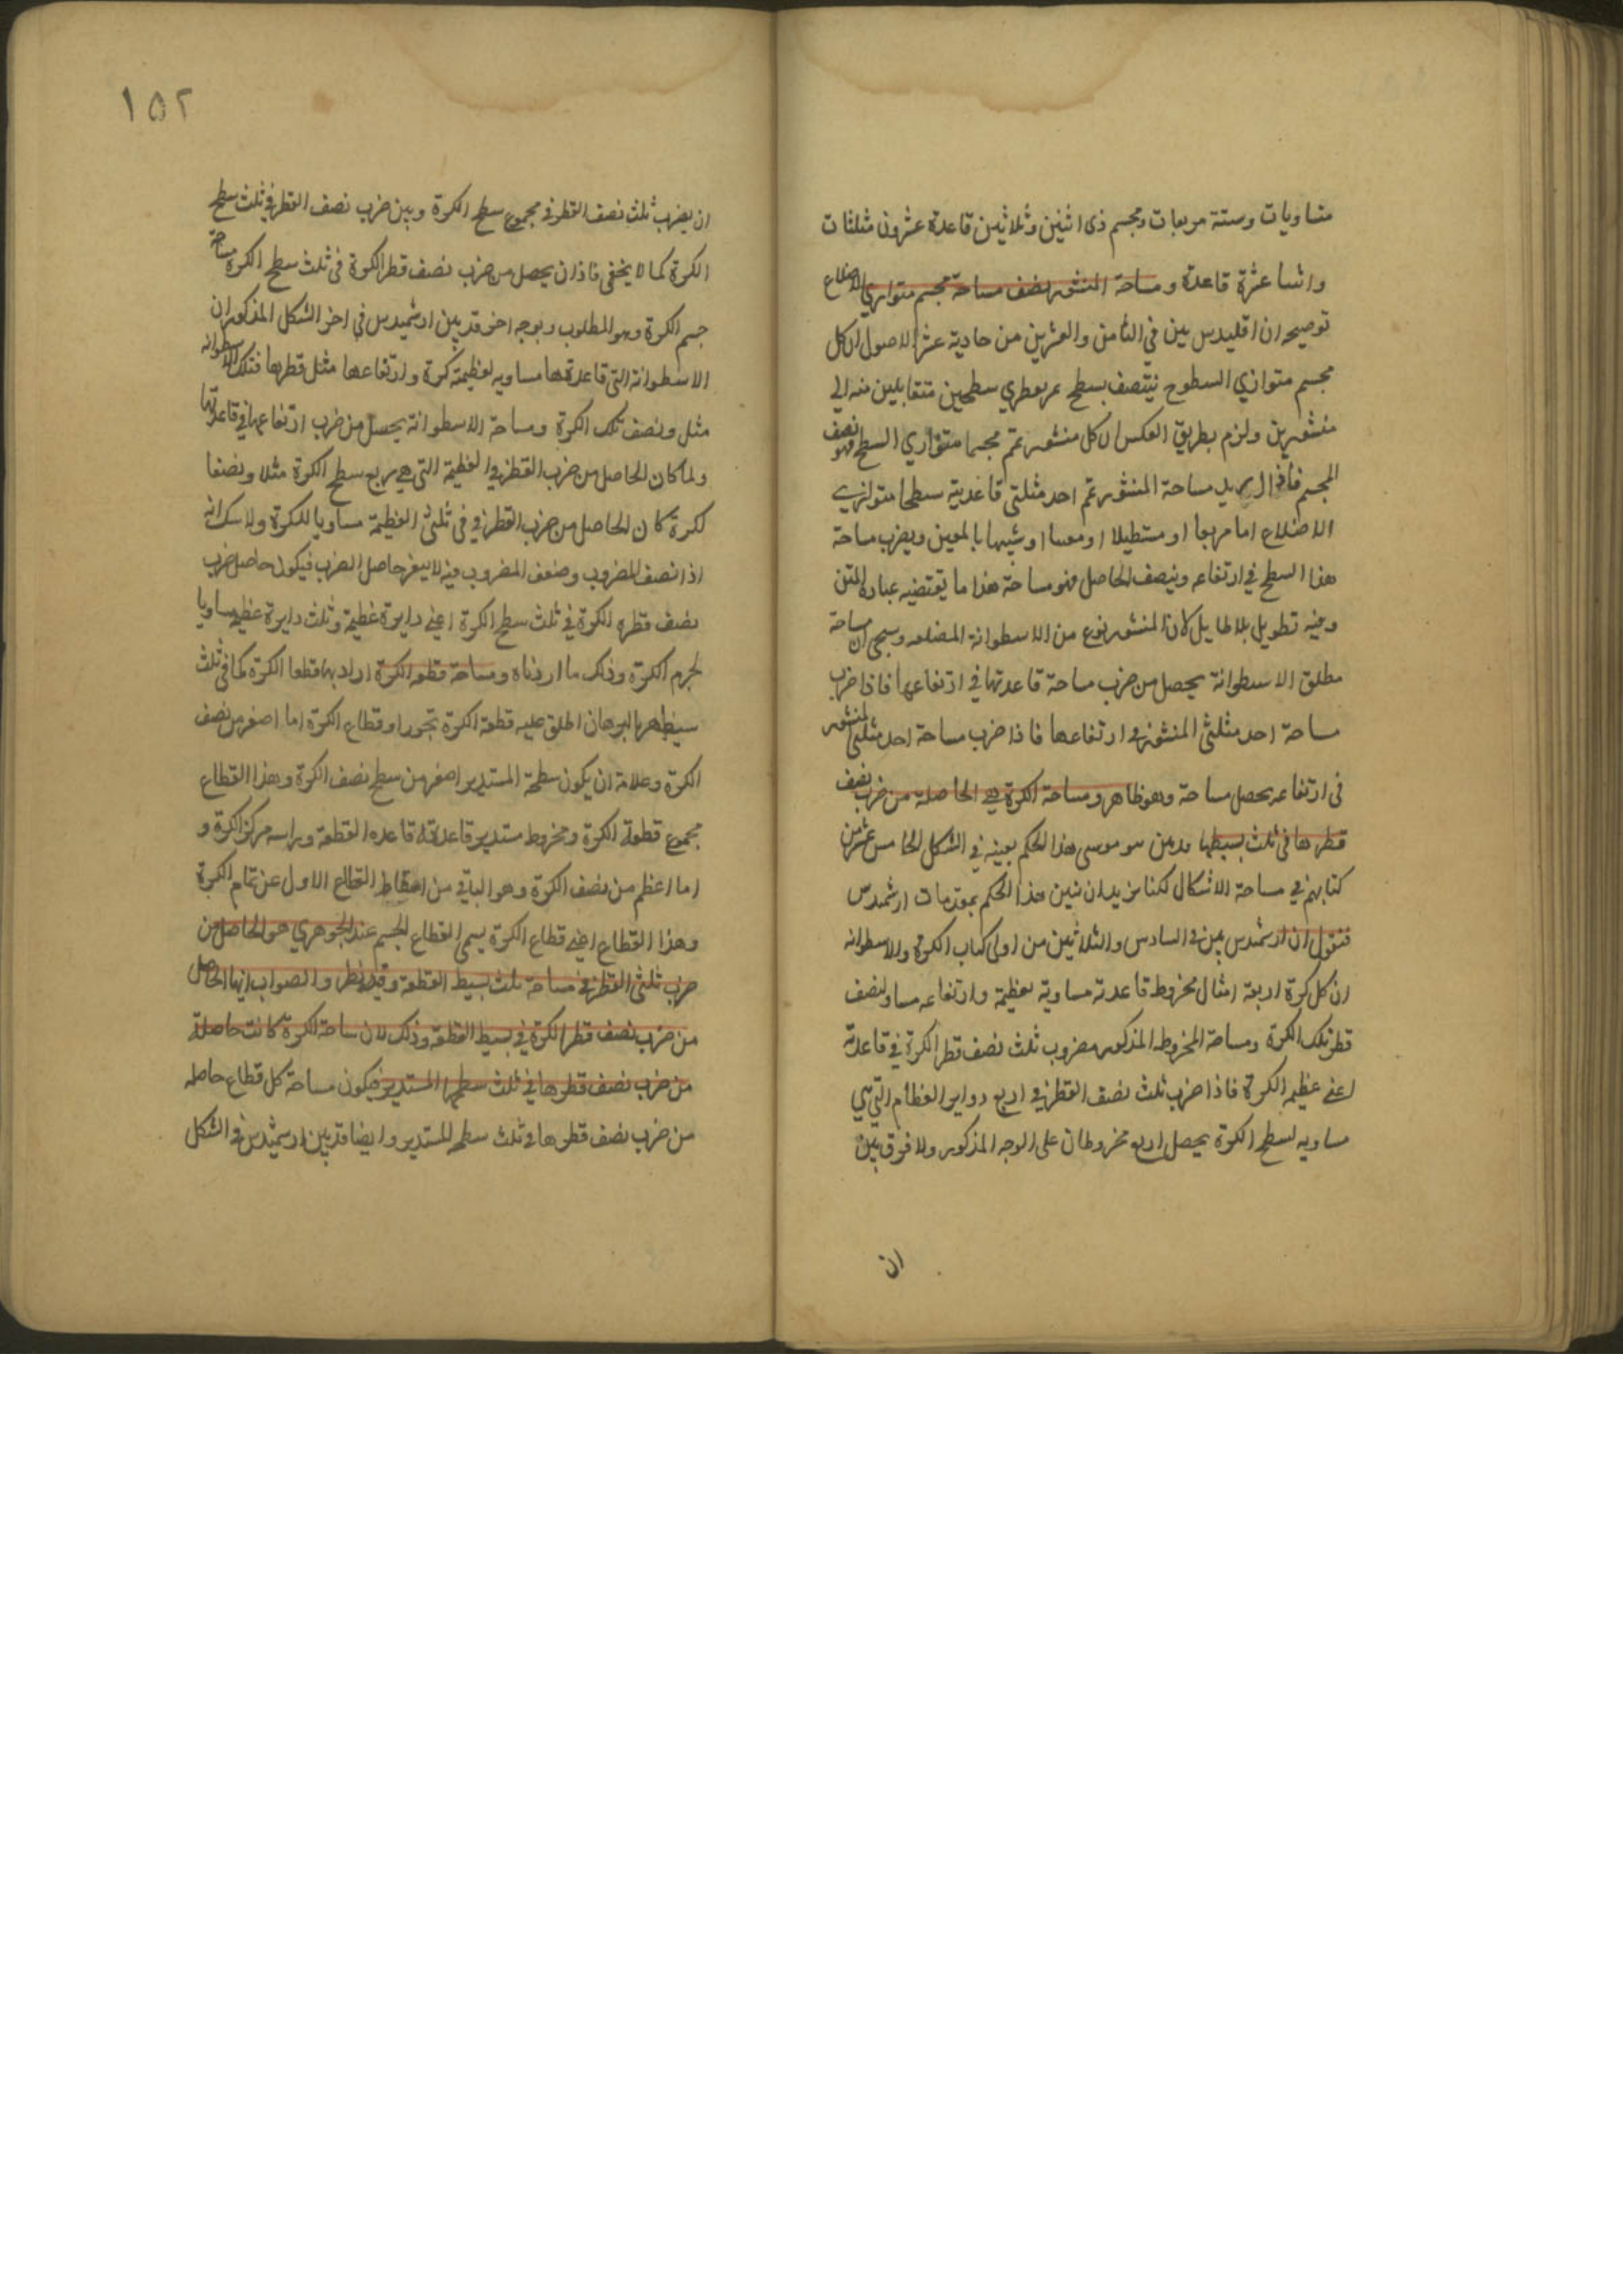 متساويات وستة مربعات ومجسم ذى اثنين وثلاثين قاعدة عشرون مثلثات
واثنا عشرة قاعدة ومساحة المنشور نصف مساحة مجسم متوازي الاضلاع
توضيحه ان اقليدس بين في الثامن والعشرين من حادية عشر الاصول ان كل
مجسم متوازي السطوح ينتصف بسطح يمر بقطري سطحين متقابلين منه الي
منشورين ولزم بطريق العكس ان كل منشور تمم مجسما متوازي السطح فهو نصف
المجسم فاذا اريد مساحة المنشور تمم احد مثلثي قاعدتيه سطحا متوازي
الاضلاع اما مربعا او مستطيلا او معينا او شبيها بالمعين ويضرب مساحة
هذا السطح في ارتفاعه وينصف الحاصل فهو مساحة هذا ما يقتضيه عبارة المتن
وفيه تطويل بلا طايل لان المنشور نوع من الاسطوانة المضلعه وسيجي ان مساحة
مطلق الاسطوانة يحصل من ضرب مساحة قاعدتها في ارتفاعها فاذا ضرب
مساحة احد مثلثي المنشور في ارتفاعها فاذا ضرب مساحة احد مثلثي المنشور
في ارتفاعه يحصل مساحة وهو ظاهر ومساحة الكرة هي الحاصلة من ضرب نصف
قطرها في ثلث بسيطها بنو موسى هذا الحكم بعينه في الشكل الخامس عشر من
كتابهم في مساحة الاشكال لكنا نريد ان نبين هذا الحكم بمقدمات ارشمدس
فنقول ان ارشمدس بين في السادس والثلاثين من اولى كتاب الكرة والاسطوانه
ان كل كرة اربعة امثال مخروط قاعدته مساوية لعظيمة وارتفاعه مساو لنصف
قطر تلك الكرة ومساحة المخروط المذكور مضروب ثلث نصف قطر الكرة في قاعدته
اعني عظيمه الكرة فاذا ضرب ثلث نصف القطر في اربع دواير العظام التي هي
مساويه لسطح الكرة يحصل اربع مخروطات على الوجه المذكور ولا فرق بين
ان
١٥٢
ان يضرب ثلث نصف القطر في مجموع سطح الكرة وبين ضرب نصف القطر في ثلث سطح
الكرة كما لا يخفى فاذن يحصل من ضرب نصف قطر الكرة في ثلث سطح الكرة مساحة
جسم الكرة وهو المطلوب وبوجه اخر قد بين ارشميدس في اخر الشكل المذكور ان
الاسطوانة التي قاعدتها مساويه لعظيمة كرة وارتفاعها مثل قطرها فتلك الاسطوانه
مثل ونصف تلك الكرة ومساحة الاسطوانة يحصل من ضرب ارتفاعها في قاعدتها
ولما كان الحاصل من ضرب القطر في العظيمة التي هي ربع سطح الكرة مثلا ونصفا
لكرة كان الحاصل من ضرب القطر في ثلثي العظيمة مساويا للكرة ولا شك انه
اذا نصف المضروب وضعف المضروب فيه لا يتغير حاصل الضرب فيكون حاصل ضرب
نصف قطر الكرة في ثلث سطح الكرة اعني دايرة عظيمة وثلث دايرة عظيمه مساويا
لجرم الكرة وذلك ما اردناه ومساحة قطعه الكرة اراد بها قطعا الكرة كما في ثلث
سيظهر بالبرهان اطلق عليه قطعة الكرة تجوزا وقطاع الكرة اما اصغر من نصف
الكرة وعلامة ان يكون سطحه المستدير اصغر من سطح نصف الكرة وهذا القطاع
مجموع قطعة الكرة ومخروط مستدير قاعدته قاعده القطعة وراسه مركز الكرة و
اما اعظم من نصف الكرة وهو الباقي من اسقاط القطاع الاول عن تمام الكرة
وهذا القطاع اعني قطاع الكرة يسمى القطاع المجسم عند الجوهري هو الحاصل من
ضرب ثلثي القطر في مساحة ثلث بسيط القطعة وفيه نظر والصواب انها الحاصل
من ضرب نصف قطر الكرة في بسيط القطعه وذلك لان مساحة الكرة كانت حاصلة
من ضرب نصف قطرها في ثلث سطحها المستدير فيكون مساحة كل قطاع حاصله
من ضرب نصف قطرها في ثلث سطحه المستدير وايضا قد بين ارشميدس في الشكل